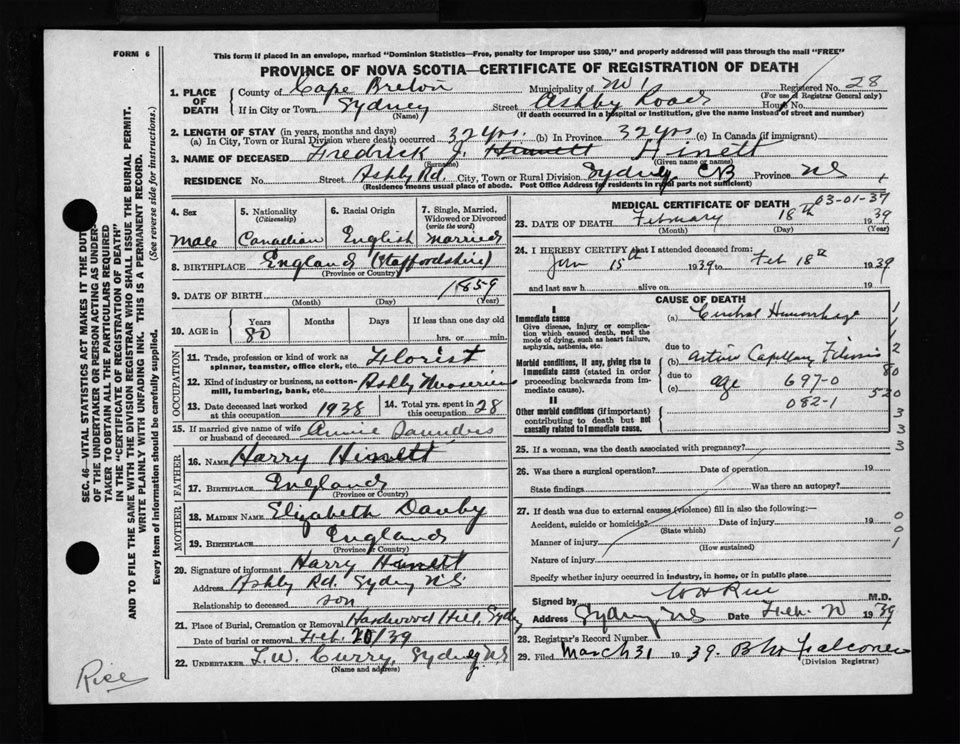 FORM 6
This form if placed in an envelope, marked "Dominion Statistics—Free, penalty for improper use $300," and properly addressed will pass through the mail "FREE"
PROVINCE OF NOVA SCOTIA—CERTIFICATE OF REGISTRATION OF DEATH
1. PLACE OF DEATH
County of Cape Breton Municipality of No 1 Registered No. 28
(For use of Registrar General only)
If in City or Town Sydney Street Ashby Road House No.
(Name) (If death occurred in a hospital or institution, give the name instead of street and number)
2. LENGTH OF STAY (in years, months and days)
(a) In City, Town or Rural Division where death occurred 32 yrs. (b) In Province 32 yrs (c) In Canada (if immigrant)
3. NAME OF DECEASED Fredrick J. Hinnett Hinett
(Surname) (Given name or names)
RESIDENCE No. Street Ashby Rd. City, Town or Rural Division Sydney CB Province NS
(Residence means usual place of abode. Post Office Address for residents in rural parts not sufficient)
4. Sex
Male
5. Nationality (Citizenship)
Canadian
6. Racial Origin
English
7. Single, Married, Widowed or Divorced (write the word)
Married
8. BIRTHPLACE England (Staffordshire)
(Province or Country)
9. DATE OF BIRTH 1859
(Month) (Day) (Year)
10. AGE in Years Months Days If less than one day old
80 hrs. or min.
OCCUPATION
11. Trade, profession or kind of work as spinner, teamster, office clerk, etc. Florist
12. Kind of industry or business, as cotton-mill, lumbering, bank, etc. Ashby
13. Date deceased last worked at this occupation 1938
14. Total yrs. spent in this occupation 28
15. If married give name of wife or husband of deceased Annie Saunders
FATHER
16. NAME Harry Hinnett
17. BIRTHPLACE England
(Province or Country)
MOTHER
18. MAIDEN NAME Elizabeth Danby
19. BIRTHPLACE England
(Province or Country)
20. Signature of informant Harry Hinnett
Address Ashby Rd. Sydney NS
Relationship to deceased son
21. Place of Burial, Cremation or Removal Hardwood Hill, Sydney
Date of burial or removal Feb. 20/39
22. UNDERTAKER T.W. Curry, Sydney NS
(Name and address)
MEDICAL CERTIFICATE OF DEATH
03-01-37
23. DATE OF DEATH February 18th 1939
(Month) (Day) (Year)
24. I HEREBY CERTIFY that I attended deceased from:
Jan 15th 1939 to Feb 18th 1939
and last saw h alive on 19
CAUSE OF DEATH
I
Immediate cause
Give disease, injury or complication which caused death, not the mode of dying, such as heart failure, asphyxia, asthenia, etc.
(a) Cerebral Hemorrhage
due to
Morbid conditions, if any, giving rise to immediate cause (stated in order proceeding backwards from immediate cause).
(b) Arterio Capillary Fibrosis
due to
(c) age 697-0
082-1
II
Other morbid conditions (if important) contributing to death but not causally related to immediate cause.
1
1
2
80
520
3
3
3
25. If a woman, was the death associated with pregnancy?
26. Was there a surgical operation? Date of operation 19
State findings Was there an autopsy?
27. If death was due to external causes (violence) fill in also the following:—
Accident, suicide or homicide? Date of injury 19
(State which)
Manner of injury
(How sustained)
Nature of injury
0
0
1
Specify whether injury occurred in industry, in home, or in public place
Signed by W H Rice M.D.
Address Sydney NS Date Feb. 1939
28. Registrar's Record Number
29. Filed March 31 1939. Falconer
(Division Registrar)
Rice
SEC. 46—VITAL STATISTICS ACT MAKES IT THE DUTY
OF THE UNDERTAKER OR PERSON ACTING AS UNDERTAKER TO OBTAIN ALL THE PARTICULARS REQUIRED
IN THE "CERTIFICATE OF REGISTRATION OF DEATH"
AND TO FILE THE SAME WITH THE DIVISION REGISTRAR WHO SHALL ISSUE THE BURIAL PERMIT.
WRITE PLAINLY WITH UNFADING INK. THIS IS A PERMANENT RECORD.
Every item of information should be carefully supplied. (See reverse side for instructions.)